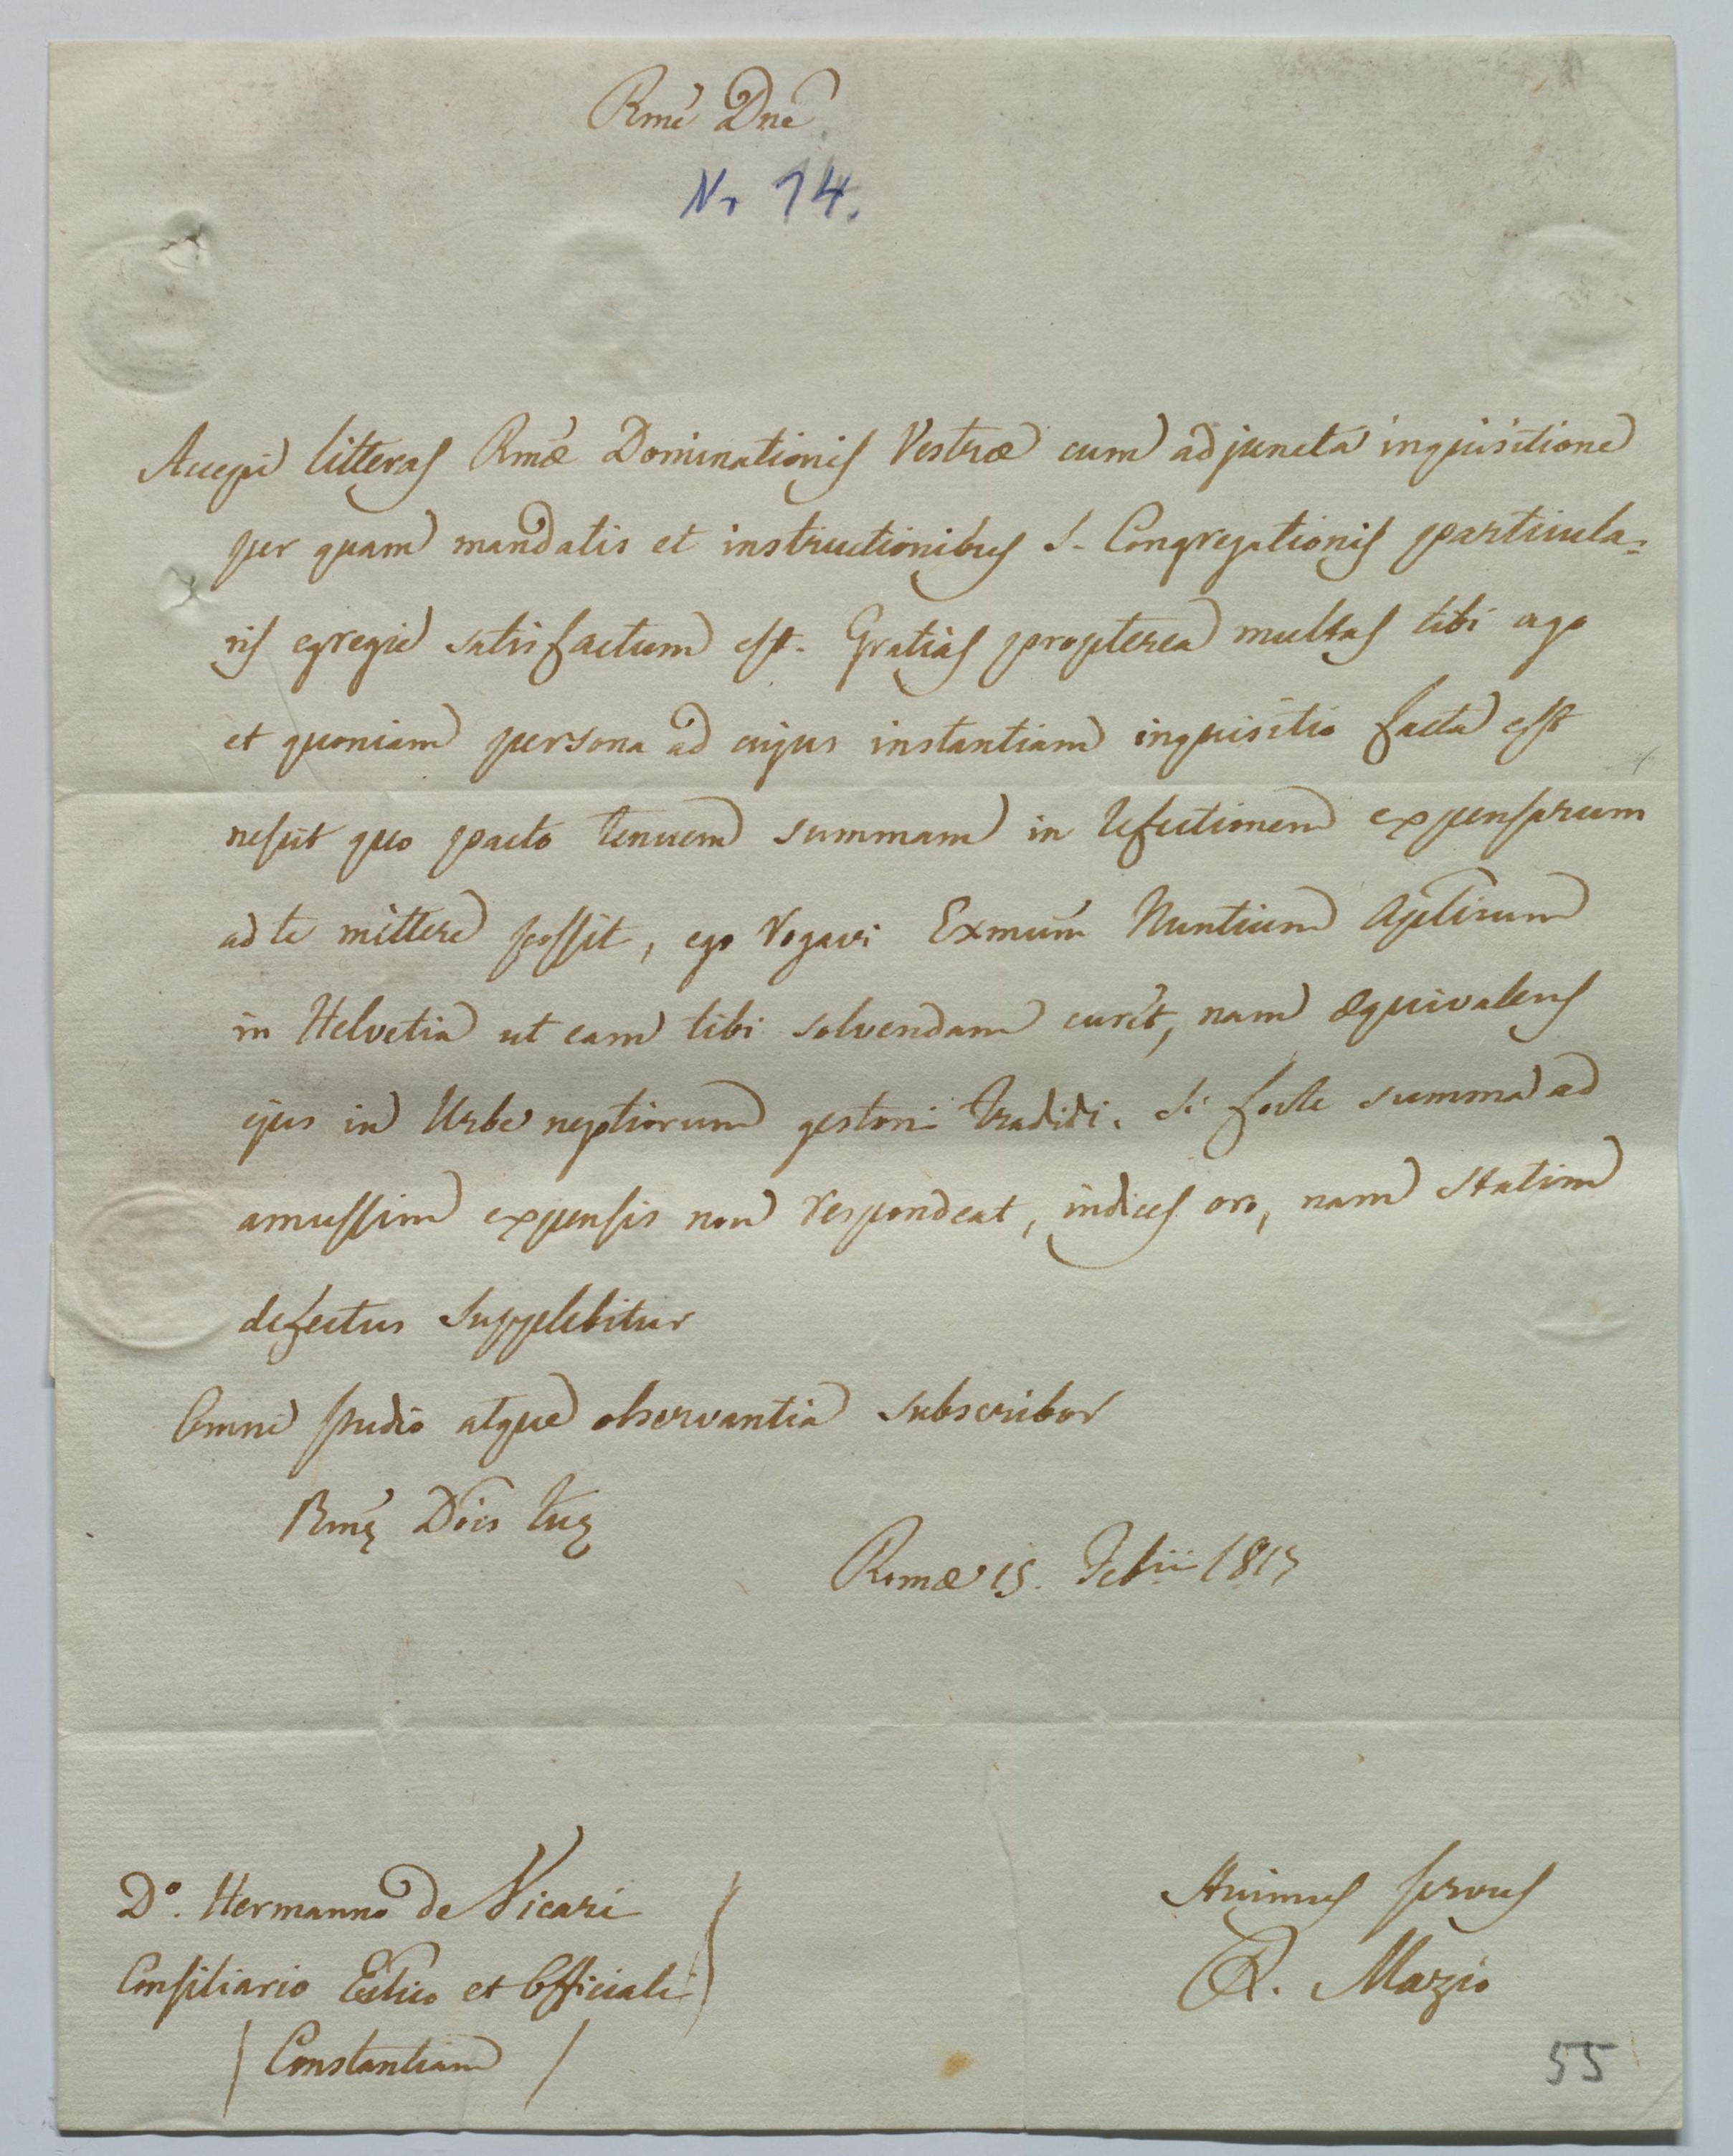 Rmē Dnē
Nr 14.
Accepi litteras Rmæ Dominationis Vestræ cum adjuncta inquisitione
per quam mandatis et instructionibus S. Congregationis particula=
ris egregie satisfactum est. Gratias propterea multas tibi ago
et quoniam persona ad cujus instantiam inquisitio facta est
nescit quo pacto tenuem summam in refectionem expensarum
ad te mittere possit, ego rogavi Exmum Nuntium Aplicum
in Helvetia ut eam tibi solvendam curet, nam æquivalens
ejus in Urbe negotiorum gestori tradidi. Si forte summa ad
amussim expensis non respondeat, indices oro, nam statim
defectus supplebitur
Omni studio atque observantia subscribor
Rmę Dõis tuę
Romæ 15. Febii 1817
Do. Hermanno de Vicari
Consiliario Eccltico et Officiali
Constantiam
Humus servus
R. Mazio
55